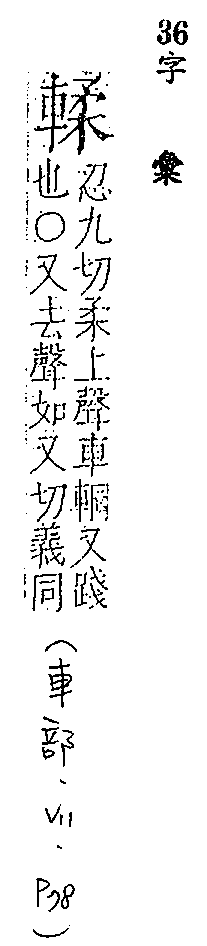 36
字彙
輮
忍九切柔上聲車輞又踐
也○又去聲如又切義同
(車部.VII.P78)